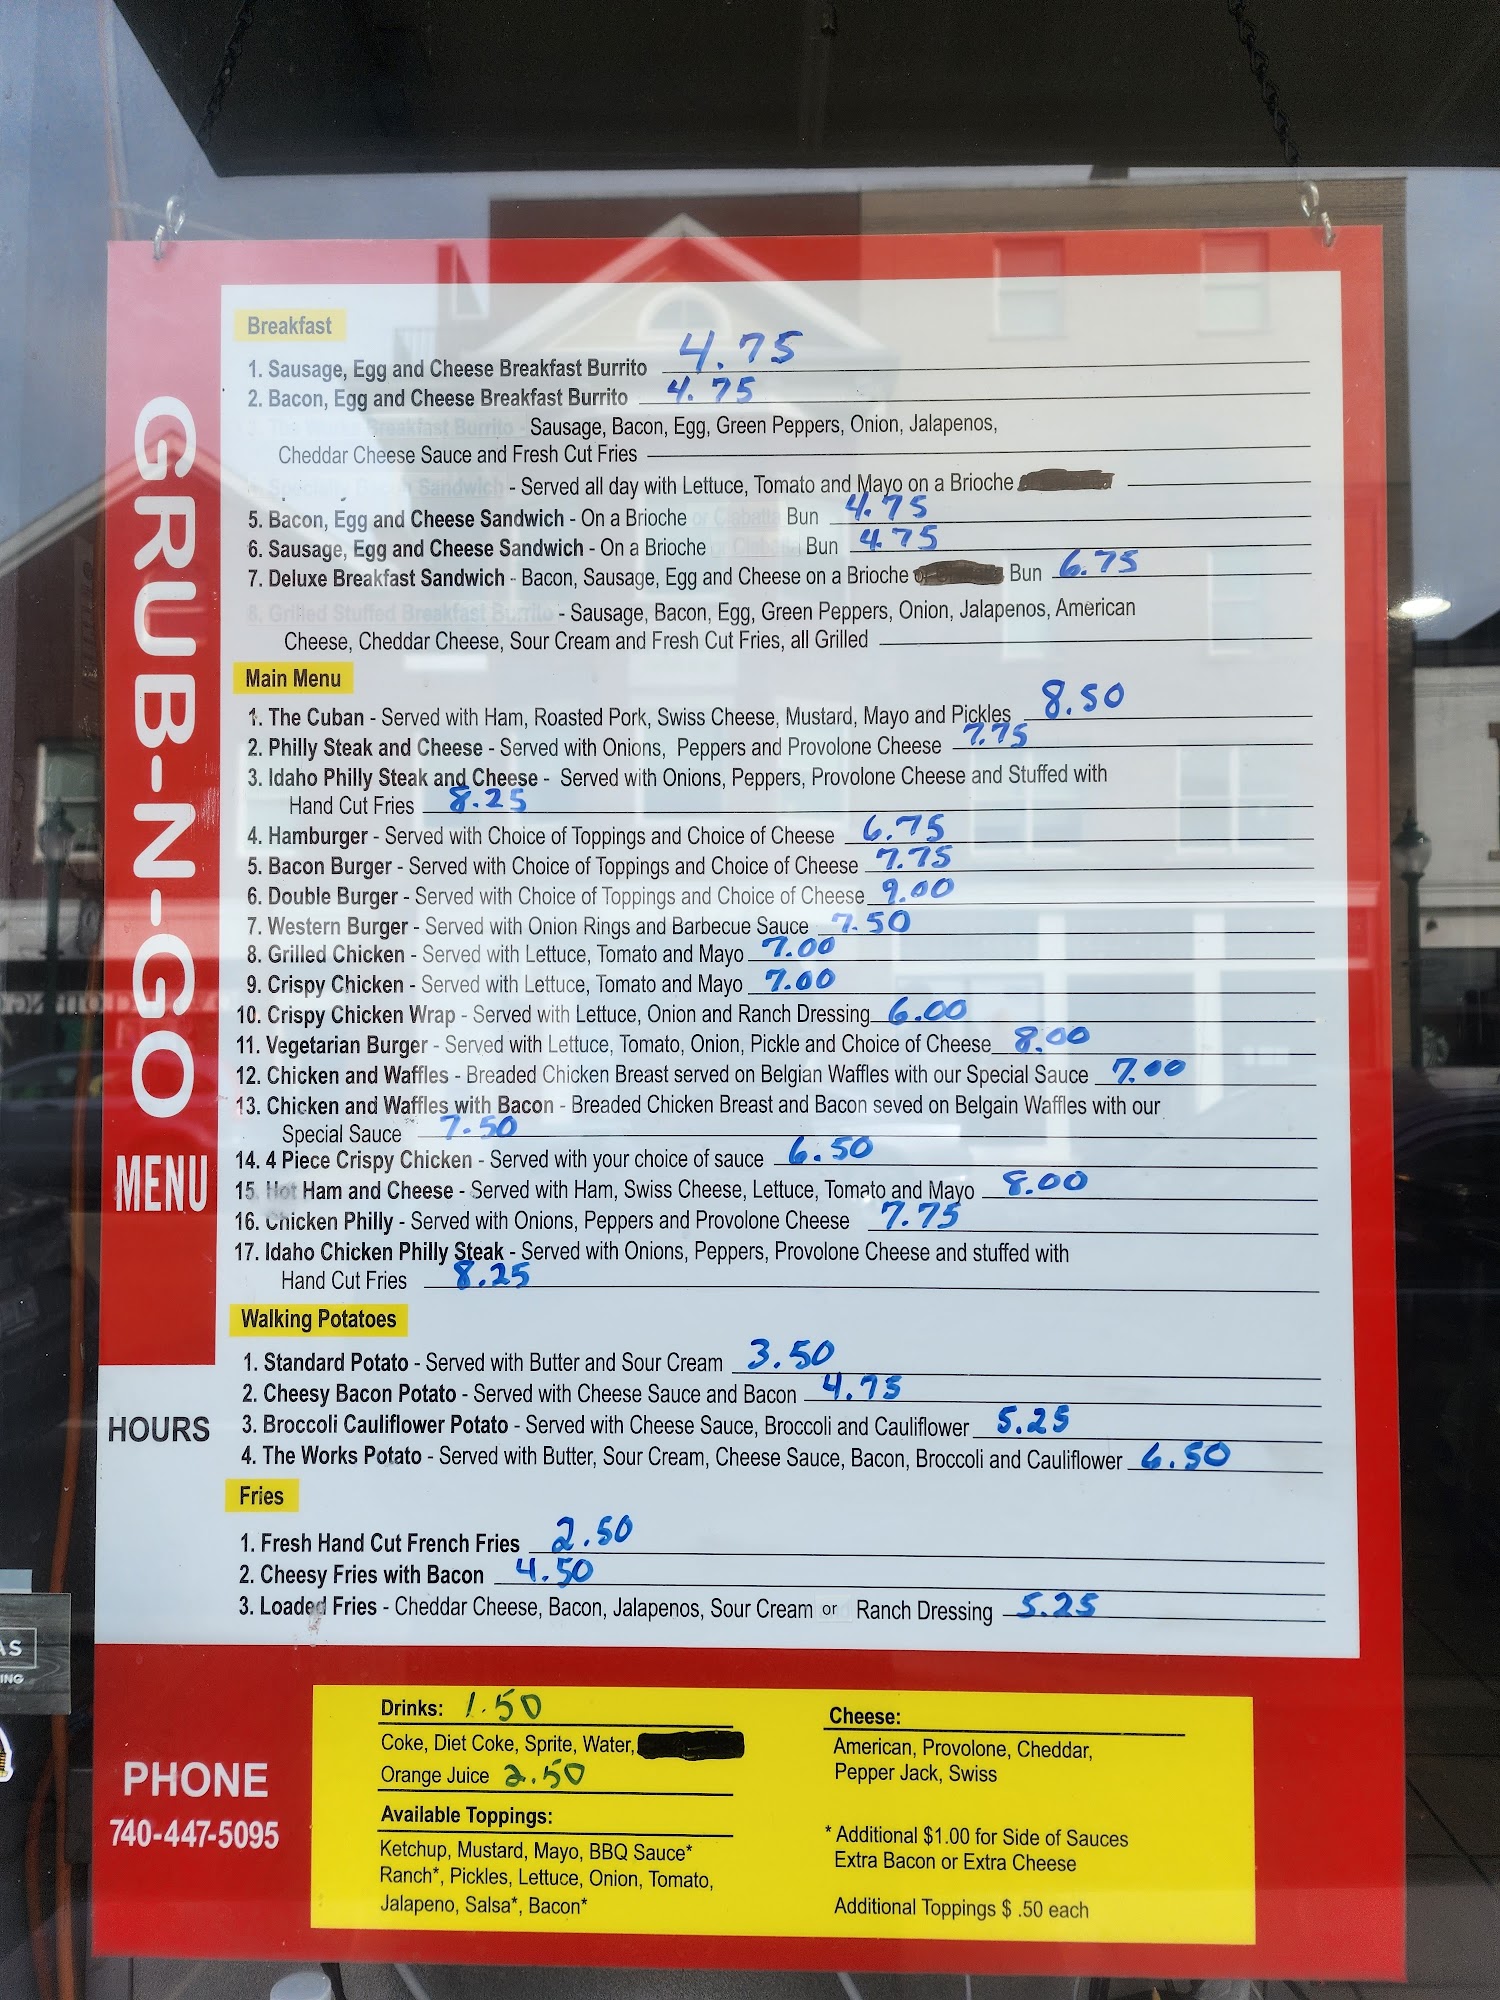 GRUB-N-GO
MENU
Breakfast
1. Sausage, Egg and Cheese Breakfast Burrito 4.75
2. Bacon, Egg and Cheese Breakfast Burrito 4.75
Breakfast Burrito - Sausage, Bacon, Egg, Green Peppers, Onion, Jalapenos,
Cheddar Cheese Sauce and Fresh Cut Fries
Sandwich - Served all day with Lettuce, Tomato and Mayo on a Brioche
5. Bacon, Egg and Cheese Sandwich - On a Brioche or Ciabatta Bun 4.75
6. Sausage, Egg and Cheese Sandwich - On a Brioche or Ciabatta Bun 4.75
7. Deluxe Breakfast Sandwich - Bacon, Sausage, Egg and Cheese on a Brioche Bun 6.75
8. Grilled Stuffed Breakfast Burrito - Sausage, Bacon, Egg, Green Peppers, Onion, Jalapenos, American
Cheese, Cheddar Cheese, Sour Cream and Fresh Cut Fries, all Grilled
Main Menu
1. The Cuban - Served with Ham, Roasted Pork, Swiss Cheese, Mustard, Mayo and Pickles 8.50
2. Philly Steak and Cheese - Served with Onions, Peppers and Provolone Cheese 7.75
3. Idaho Philly Steak and Cheese - Served with Onions, Peppers, Provolone Cheese and Stuffed with
Hand Cut Fries 8.25
4. Hamburger - Served with Choice of Toppings and Choice of Cheese 6.75
5. Bacon Burger - Served with Choice of Toppings and Choice of Cheese 7.75
6. Double Burger - Served with Choice of Toppings and Choice of Cheese 9.00
7. Western Burger - Served with Onion Rings and Barbecue Sauce 7.50
8. Grilled Chicken - Served with Lettuce, Tomato and Mayo 7.00
9. Crispy Chicken - Served with Lettuce, Tomato and Mayo 7.00
10. Crispy Chicken Wrap - Served with Lettuce, Onion and Ranch Dressing 6.00
11. Vegetarian Burger - Served with Lettuce, Tomato, Onion, Pickle and Choice of Cheese 8.00
12. Chicken and Waffles - Breaded Chicken Breast served on Belgian Waffles with our Special Sauce 7.00
13. Chicken and Waffles with Bacon - Breaded Chicken Breast and Bacon seved on Belgain Waffles with our
Special Sauce 7.50
14. 4 Piece Crispy Chicken - Served with your choice of sauce 6.50
15. Hot Ham and Cheese - Served with Ham, Swiss Cheese, Lettuce, Tomato and Mayo 8.00
16. Chicken Philly - Served with Onions, Peppers and Provolone Cheese 7.75
17. Idaho Chicken Philly Steak - Served with Onions, Peppers, Provolone Cheese and stuffed with
Hand Cut Fries 8.25
Walking Potatoes
1. Standard Potato - Served with Butter and Sour Cream 3.50
2. Cheesy Bacon Potato - Served with Cheese Sauce and Bacon 4.75
3. Broccoli Cauliflower Potato - Served with Cheese Sauce, Broccoli and Cauliflower 5.25
4. The Works Potato - Served with Butter, Sour Cream, Cheese Sauce, Bacon, Broccoli and Cauliflower 6.50
HOURS
Fries
1. Fresh Hand Cut French Fries 2.50
2. Cheesy Fries with Bacon 4.50
3. Loaded Fries - Cheddar Cheese, Bacon, Jalapenos, Sour Cream or Ranch Dressing 5.25
PHONE
740-447-5095
Drinks: 1.50
Coke, Diet Coke, Sprite, Water,
Orange Juice 2.50
Available Toppings:
Ketchup, Mustard, Mayo, BBQ Sauce*
Ranch*, Pickles, Lettuce, Onion, Tomato,
Jalapeno, Salsa*, Bacon*
Cheese:
American, Provolone, Cheddar,
Pepper Jack, Swiss
* Additional $1.00 for Side of Sauces
Extra Bacon or Extra Cheese
Additional Toppings $ .50 each
AS
ING